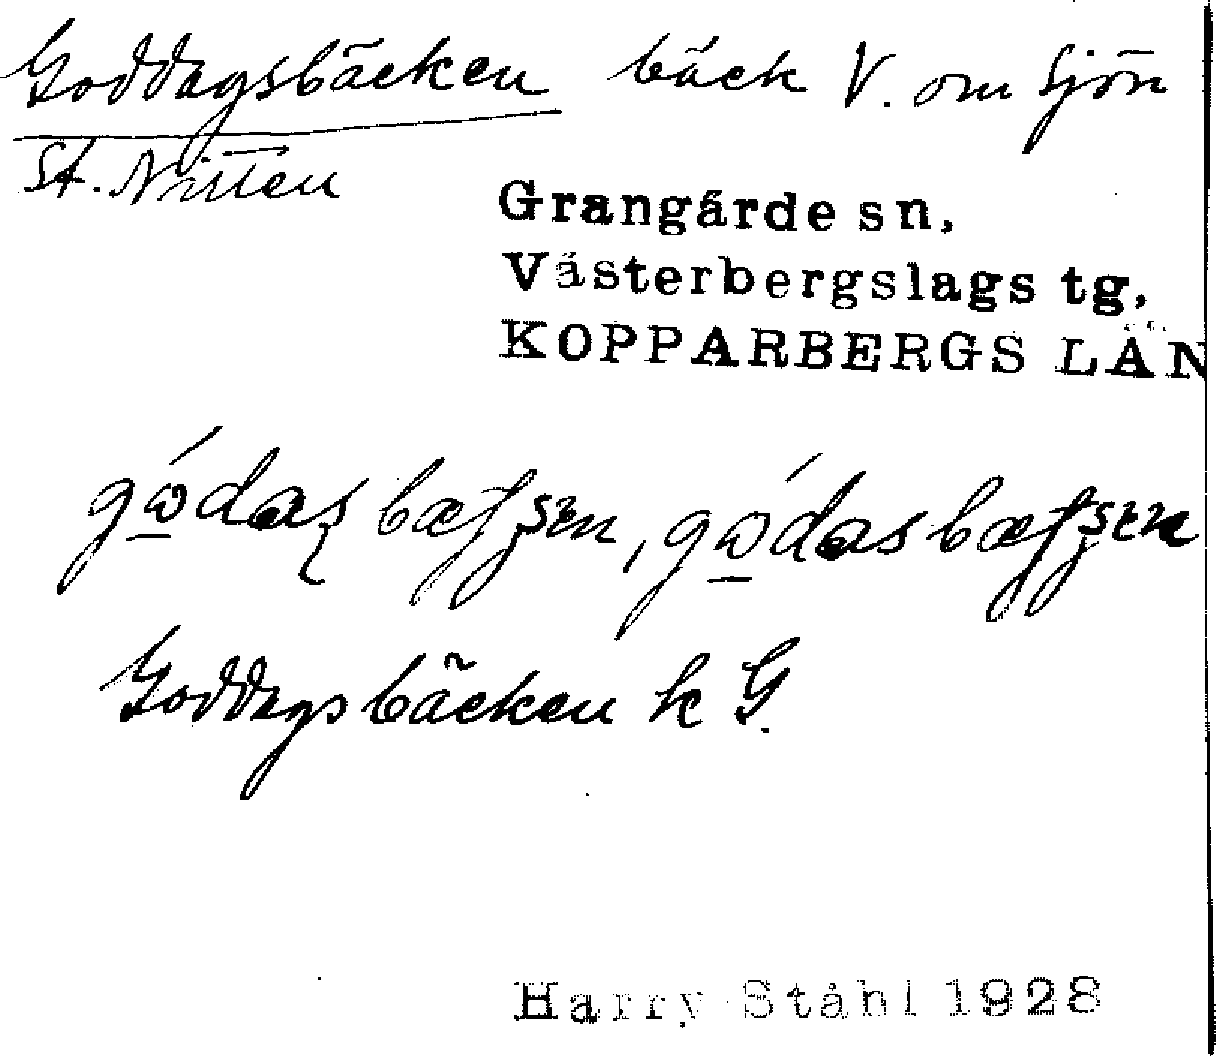 Goddagsbäcken bäck V. om sjön
St. Nitten
Grangärde sn,
Västerbergslags tg,
KOPPARBERGS LÄN
Goddagsbäcken k G.
Harry Ståhl 1928